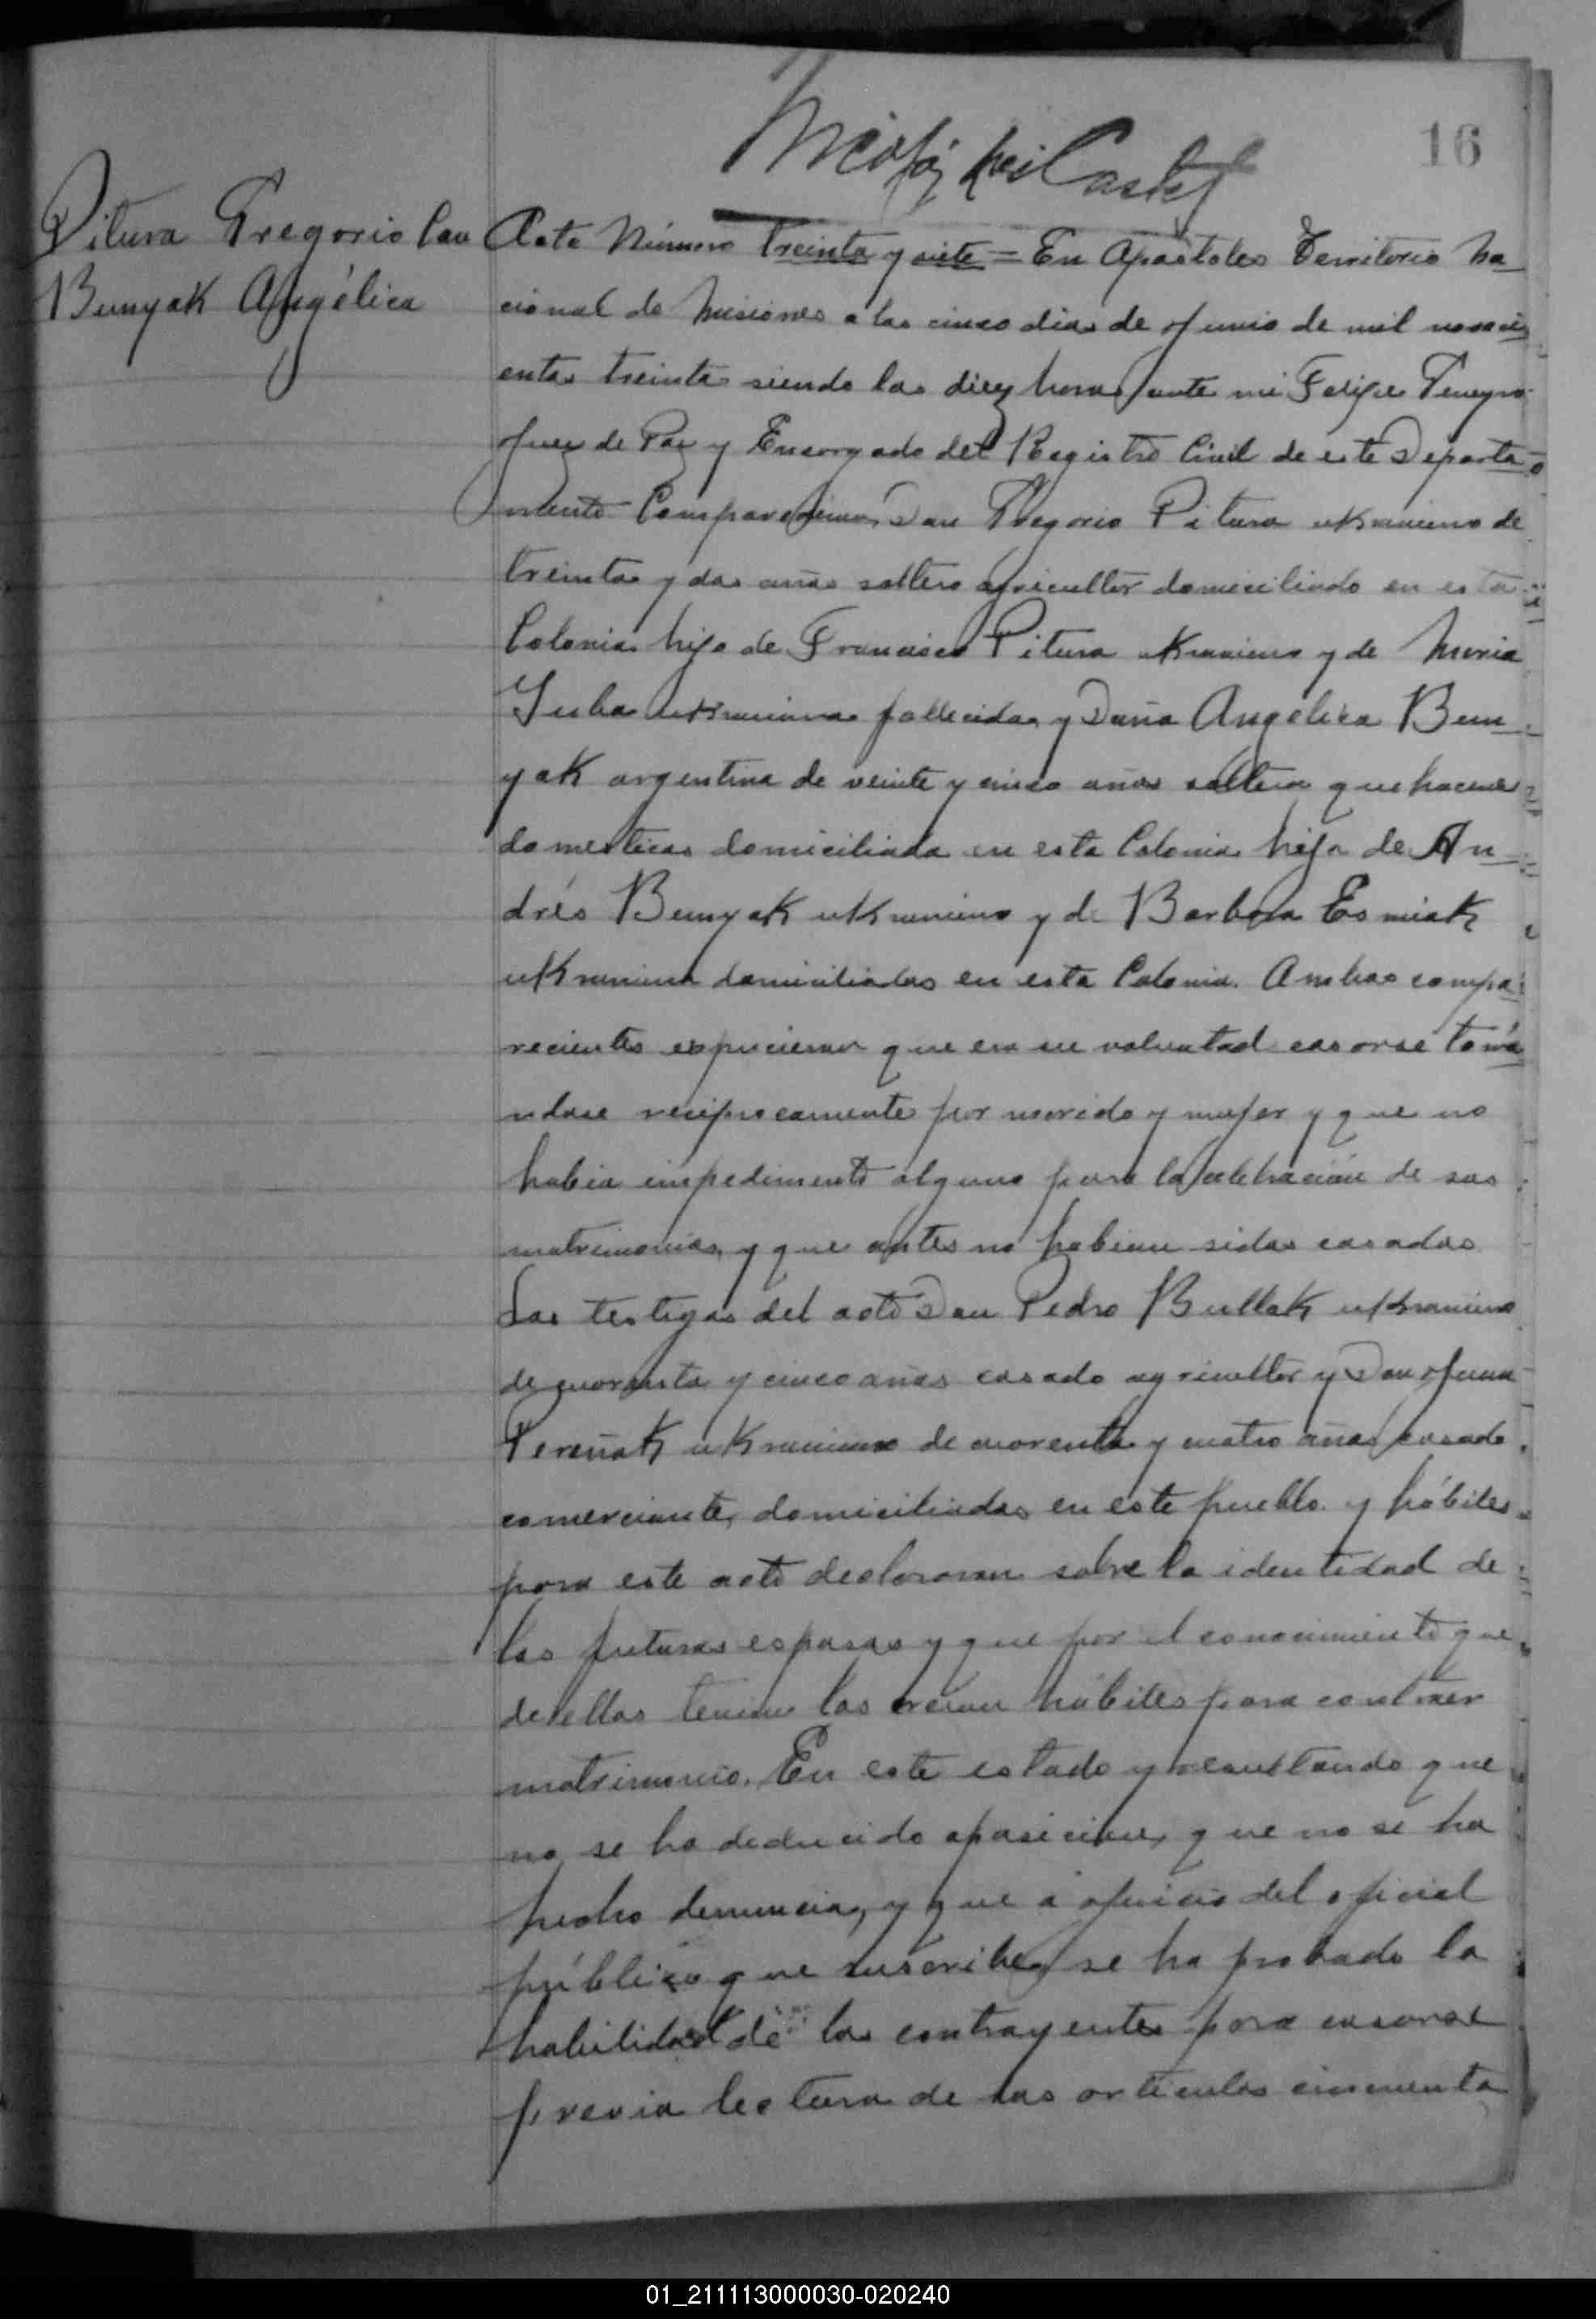 16
Pitura Gregorio Con
Bunyak Angélica
Acta Número Treinta y siete = En Apóstoles Territorio Na
cional de Misiones a los cinco dias de Junio de mil noveci
entos treinta siendo las diez horas ante mi Felipe
Juez de Paz y Encargado del Registro Civil de este Departa
mento Comparecieron Don Gregorio Pitura ukraniano de
treinta y dos años soltero agricultor domiciliado en esta
Colonia hijo de Francisco Pitura ukraniano y de Maria
Yuba ukraniana fallecidos y Doña Angélica Bun
yak argentina de veinte y cinco años soltera quehaceres
domesticos domiciliada en esta Colonia hija de An
drés Bunyak ukraniano y de Barbara Esmiak
ukraniana domiciliados en esta Colonia. Ambos compa
recientes expucieron que era su voluntad casarse tomá
ndose reciprocamente por marido y mujer y que no
habia impedimento alguno para la celebración de sus
matrimonios y que antes no habian sidos casados
Los testigos del acto Don Pedro Bullak ukraniano
de cuarenta y cinco años casado agricultor y Don Juan
Pereñak ukraniano de cuarenta y cuatro años casado
comerciante, domiciliados en este pueblo y hábiles
para este acto declararon sobre la identidad de
los futuros esposos y que por el conocimiento que
de ellos tenian los creian hábiles para contraer
matrimonio. En este estado y resultando que
no se ha deducido oposicion, que no se ha
hecho denuncia, y que a juicio del oficial
público que suscribe, se ha probado la
habilidad de los contrayentes para casarse
previa lectura de los articulos cincuenta
01_211113000030-020240